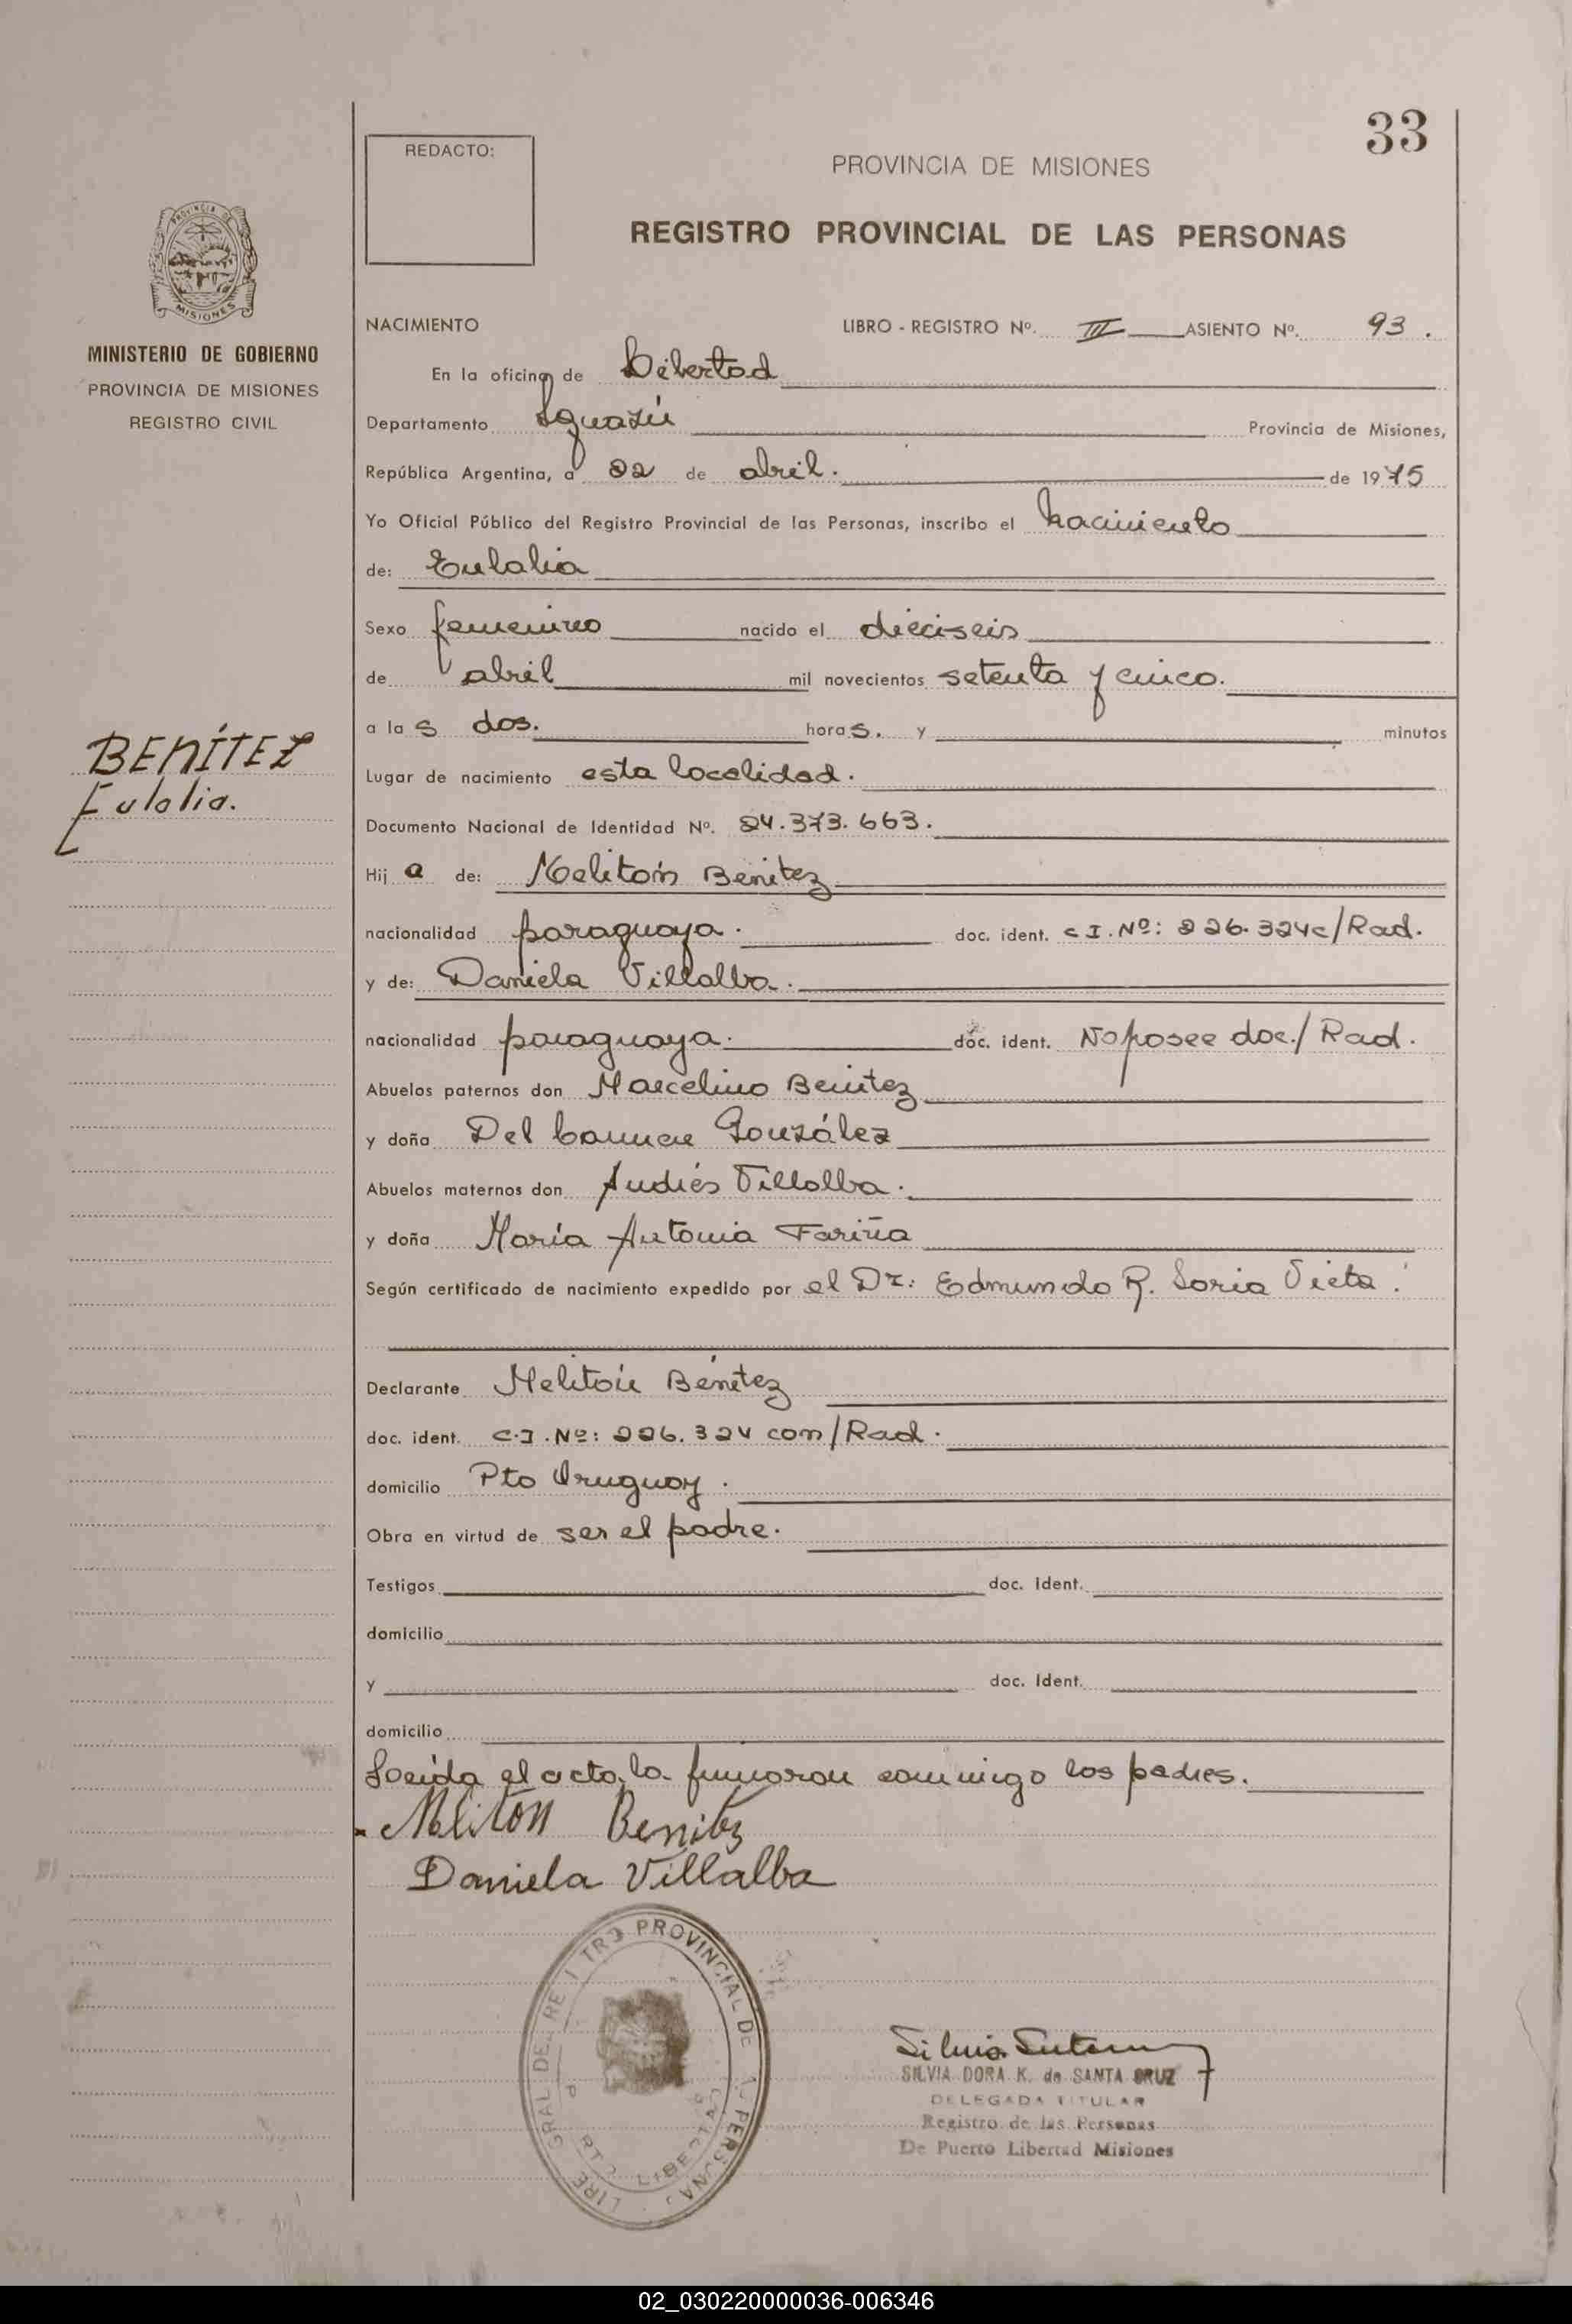 33
REDACTO:
PROVINCIA DE MISIONES
REGISTRO PROVINCIAL DE LAS PERSONAS
MISIONES
MINISTERIO DE GOBIERNO
PROVINCIA DE MISIONES
REGISTRO CIVIL
BENÍTEZ
Eulalia.
NACIMIENTO LIBRO - REGISTRO Nº. III ASIENTO Nº. 93.
En la oficina de Libertad
Departamento Iguazú Provincia de Misiones,
República Argentina, a 22 de abril. de 1975
Yo Oficial Público del Registro Provincial de las Personas, inscribo el nacimiento
de: Eulalia
Sexo femenino nacido el dieciseis
de abril mil novecientos setenta y cinco.
a las dos. horas. y minutos
Lugar de nacimiento esta localidad.
Documento Nacional de Identidad Nº. 24.373.663.
Hija de: Melitón Benítez
nacionalidad paraguaya. doc. ident. C I. Nº: 226.324c/Rad.
y de: Daniela Villalba.
nacionalidad paraguaya. doc. ident. No posee doc./Rad.
Abuelos paternos don Marcelino Benítez
y doña Del Carmen González
Abuelos maternos don Andrés Villalba.
y doña María Antonia Fariña
Según certificado de nacimiento expedido por el Dr: Edmundo R. Soria Vieta.
Declarante Melitón Benítez
doc. ident. C.I. Nº: 226.324 con/Rad.
domicilio Pto Uruguay.
Obra en virtud de ser el padre.
Testigos doc. ident.
domicilio
y doc. Ident.
domicilio
Leída el acta, la firmaron conmigo los padres.
Meliton Benitez
Daniela Villalba
SILVIA DORA K. de SANTA CRUZ
DELEGADA TITULAR
Registro de las Personas
De Puerto Libertad Misiones
02_030220000036-006346